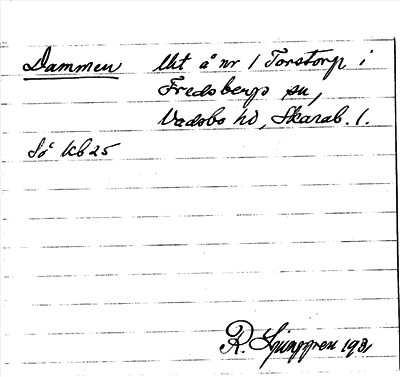 Dammen Utt å nr 1 Torstorp i
Fredsbergs sn,
Vadsbo hd, Skarab. l.
Så kb 25
R. Ljunggren 1981